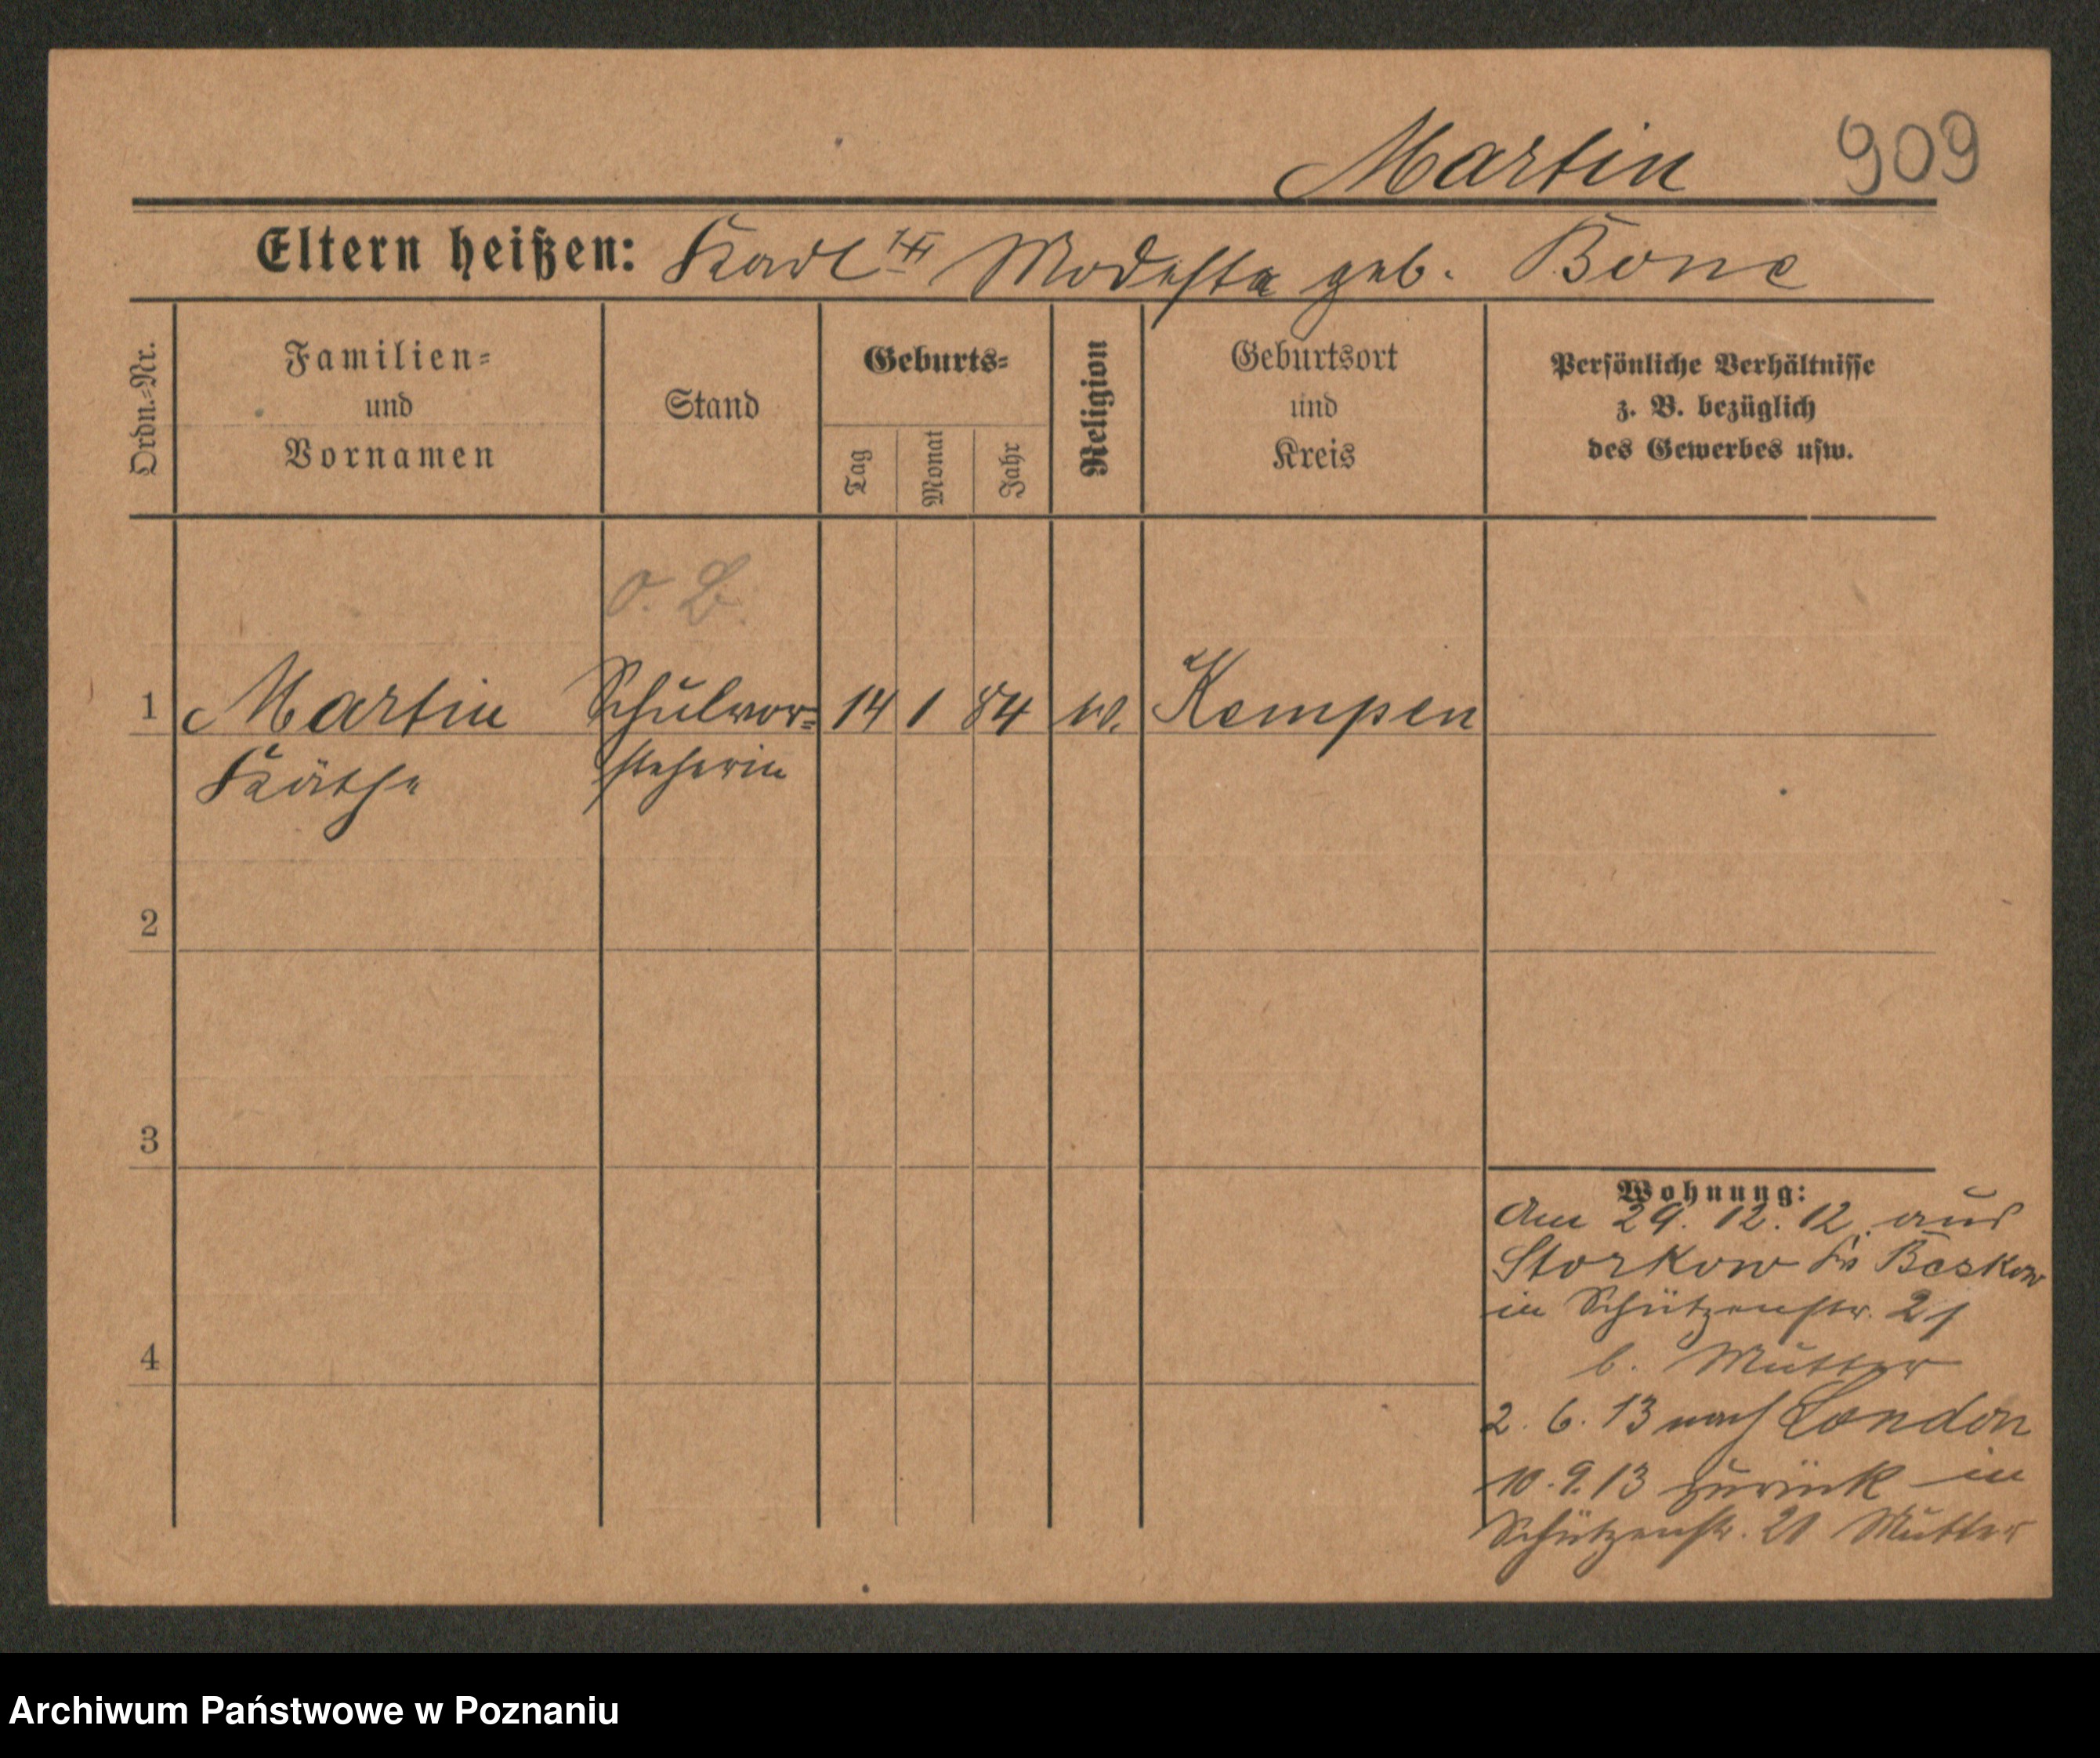 Martin 909
Eltern heißen: Karl Modesta geb. Bone
Ordn.-Nr.
Familien-
und
Vornamen
Stand
Geburts-
Tag
Monat
Jahr
Religion
Geburtsort
und
Kreis
Persönliche Verhältnisse
z. B. bezüglich
des Gewerbes usw.
o. B.
1 Martin Schulvor- 14 1 84 Kempen
Käthe steherin
2
3
4
Wohnung:
Am 29. 12. 12 aus
Storkow Kr Beskow
in Schützenstr. 21
b. Mutter
2. 6. 13 nach London
10. 9. 13 zurück in
Schützenstr. 21 Mutter
Archiwum Państwowe w Poznaniu